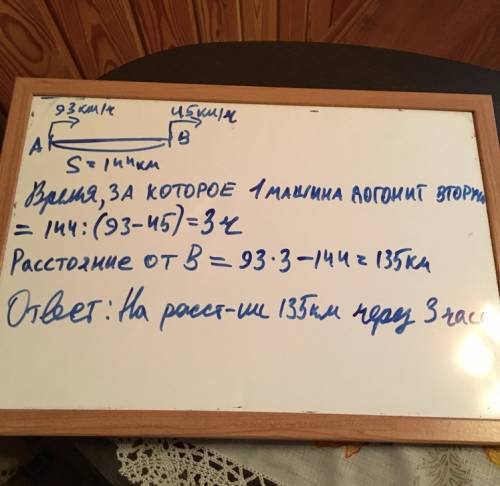 93 км/ч 45 км/ч
A B
S = 144 км
Время, за которое 1 машина догонит вторую
= 144 : (93 - 45) = 3 ч
Расстояние от B = 93 · 3 - 144 = 135 км
Ответ: На расст-ии 135 км через 3 час